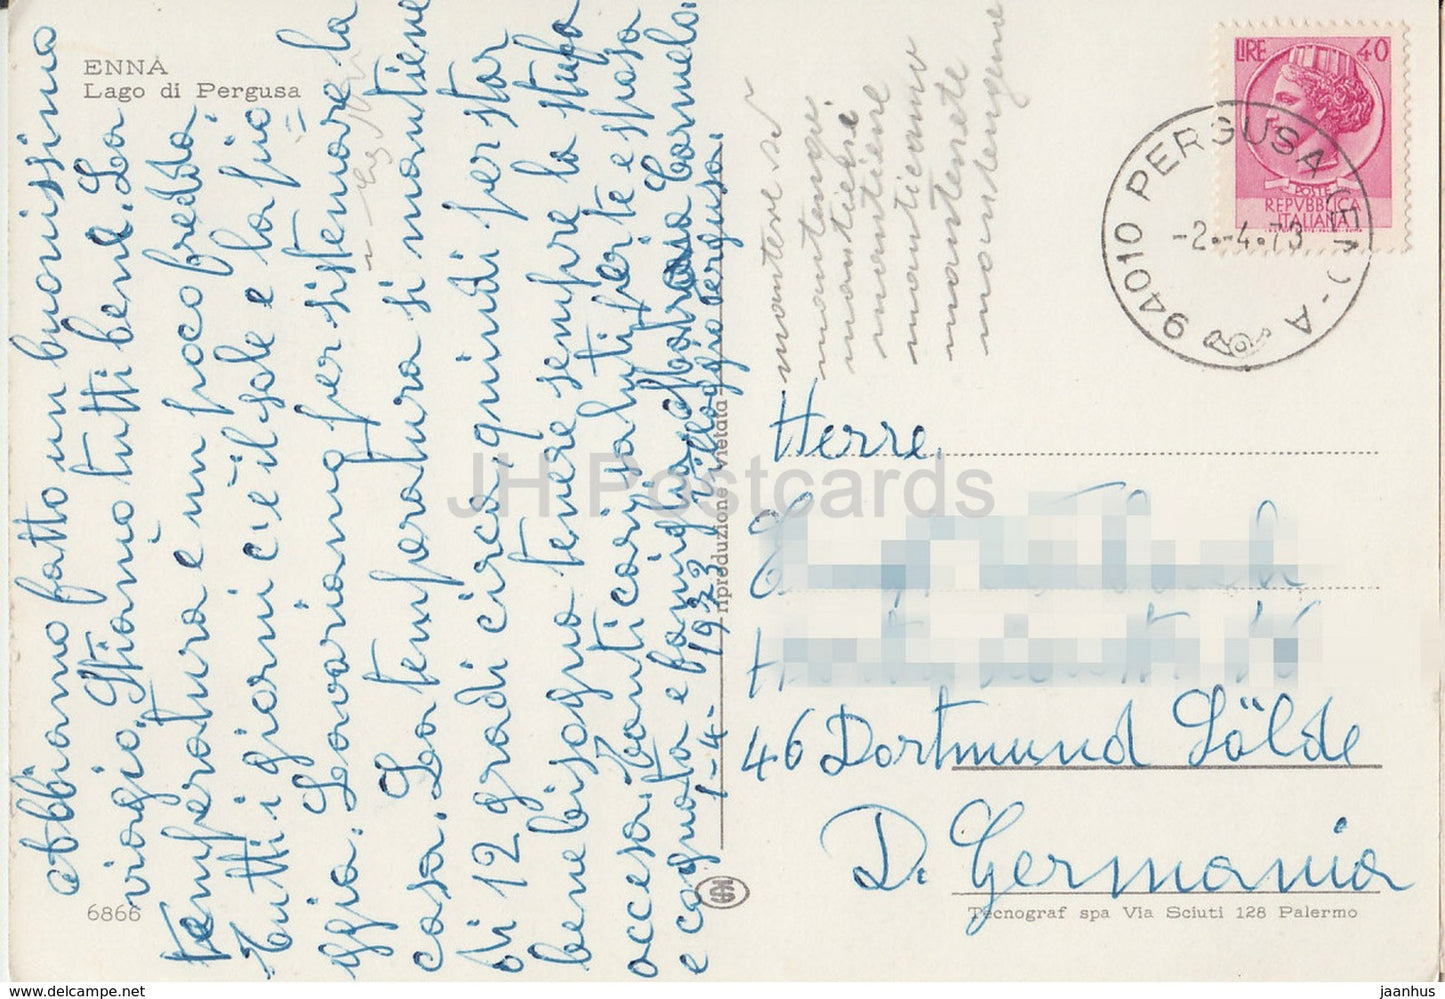 ENNA
Lago di Pergusa
abbiamo fatto un buonissimo
viaggio. Stiamo tutti bene. La
temperatura è un poco fredda
tutti i giorni c'è il sole e la pio
ggia. Lavoriamo per sistemare la
casa. La temperatura si mantiene
di 12 gradi circa, quindi per star
bene bisogna tenere sempre la stufa
accesa. Tanti cari saluti per te e sposa
e cognata e famiglia Carmelo.
1-4-1973 Villaggio Pergusa.
6866
riproduzione vietata
mantiene
LIRE 40
POSTE
REPVBBLICA
ITALIANA
94010 PERGUSA (EN) - A
-2.-4.73
Herre
46 Dortmund Sölde
D. Germania
Tecnograf spa Via Sciuti 128 Palermo
JH Postcards
www.delcampe.net
jaanhus